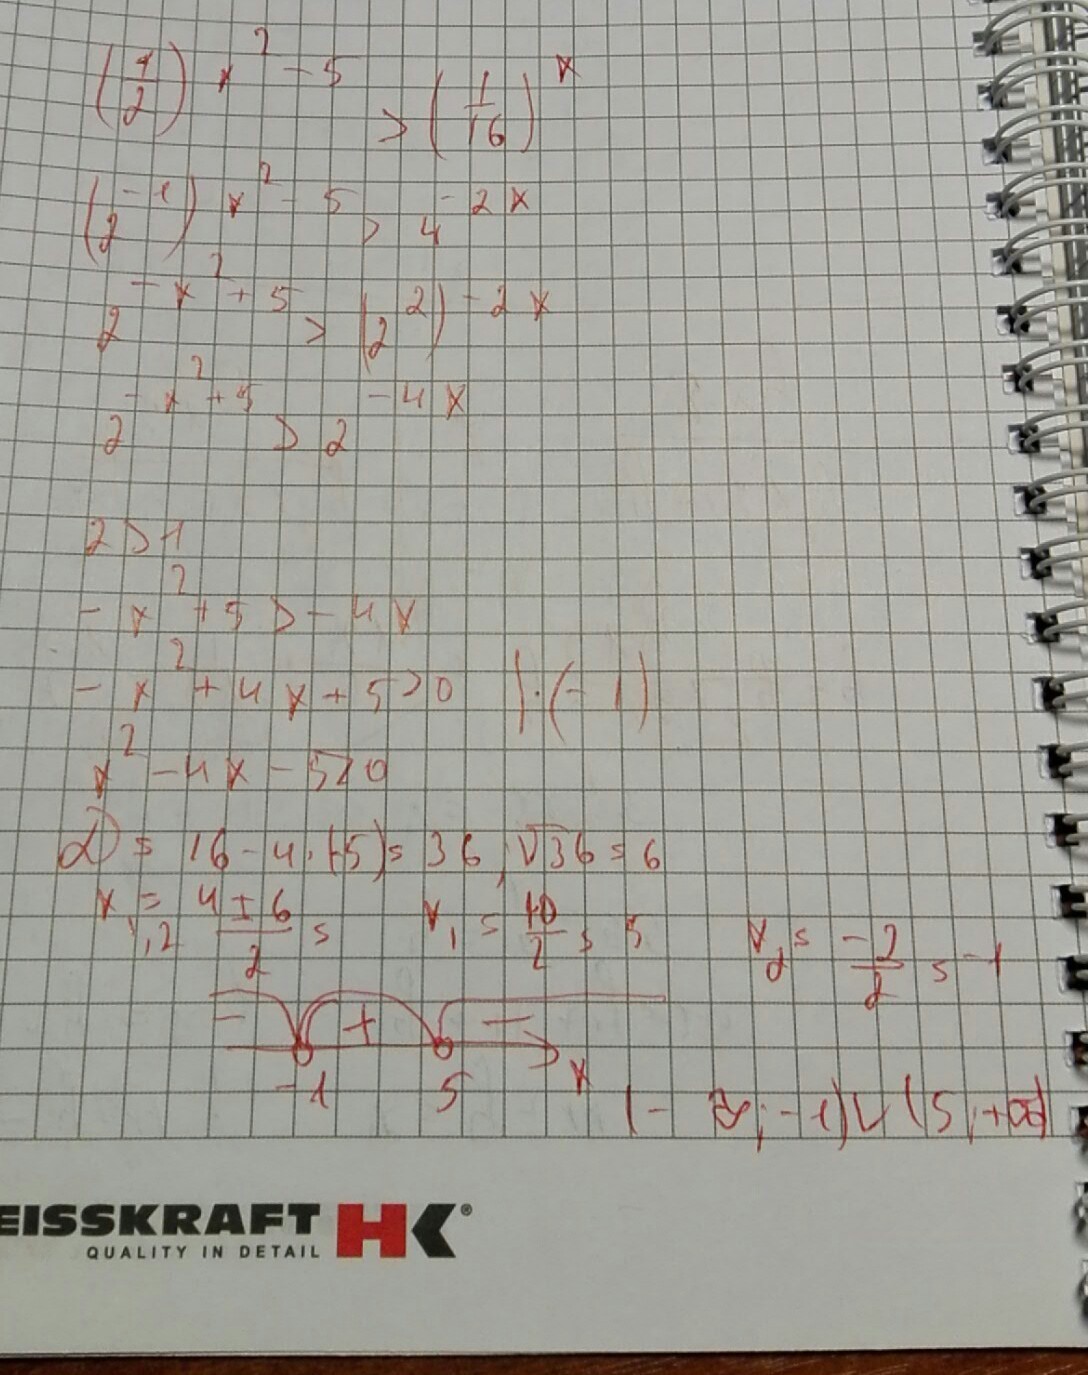 (1/2)^(x²-5) > (1/16)^x
(2^-1)^(x²-5) > 4^(-2x)
2^(-x²+5) > (2²)^(-2x)
2^(-x²+5) > 2^(-4x)
2>1
-x²+5>-4x
-x²+4x+5>0 |·(-1)
x²-4x-5>0
D=16-4·(-5)=36, √36=6
x₁,₂=(4±6)/2= x₁=10/2=5 x₂=-2/2=-1
- + -
-1 5 x
(-∞;-1)∪(5;+∞)
EISSKRAFT HK®
QUALITY IN DETAIL